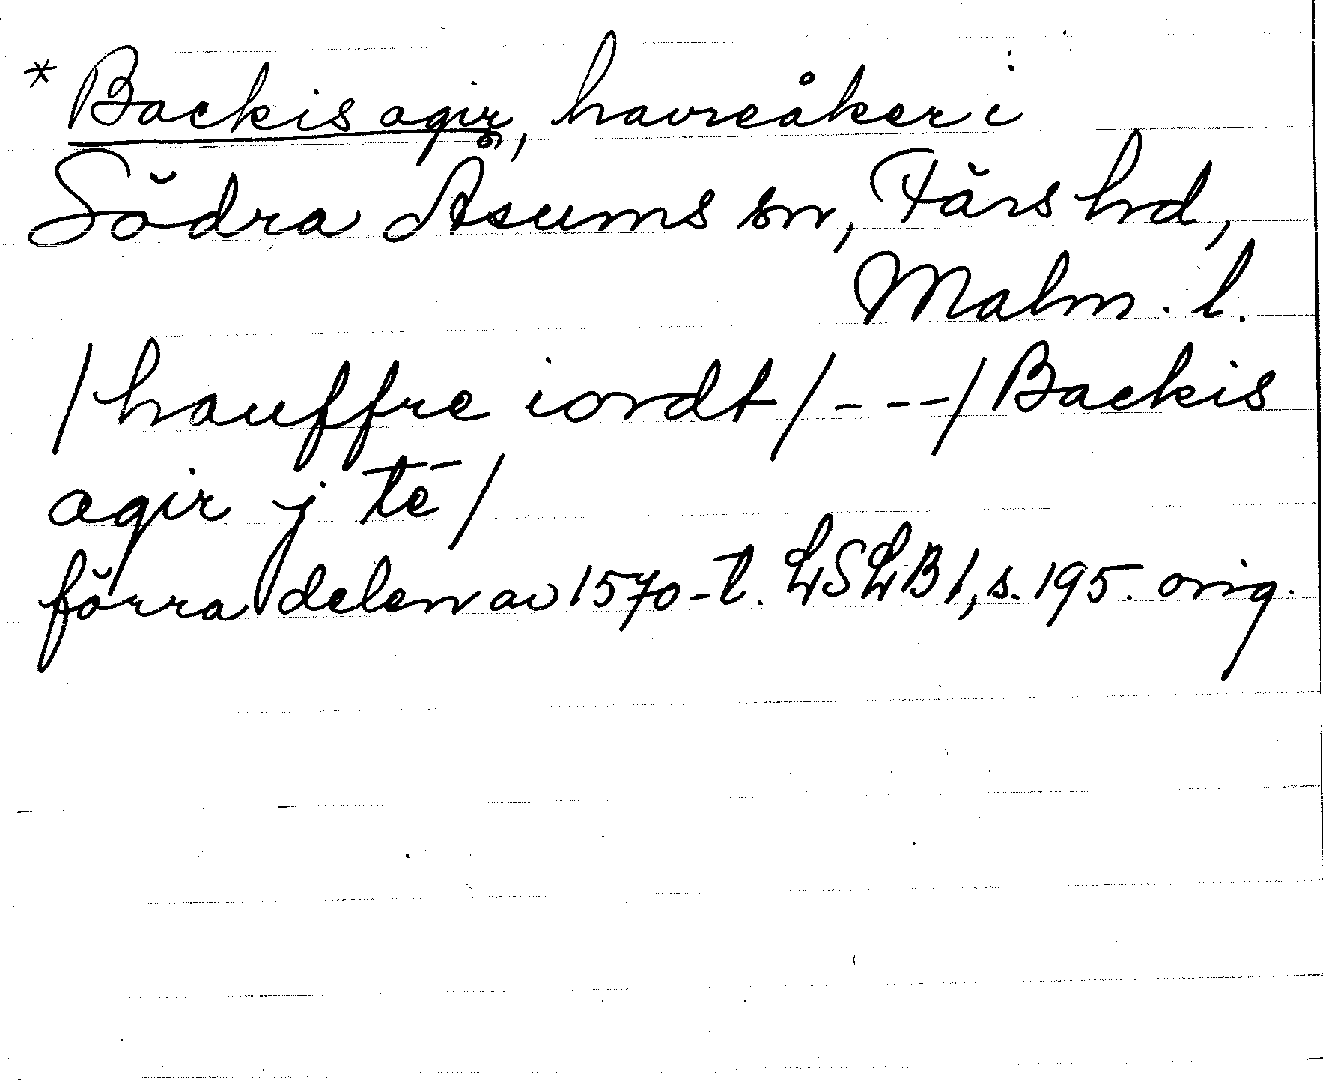 * Backis agir, havreåker i
Södra Åsums sn, Färs hd,
Malm. l.
/hauffre iordt/---/Backis
agir j tē/
förra delen av 1570-t. LSLB 1, s. 195. orig.